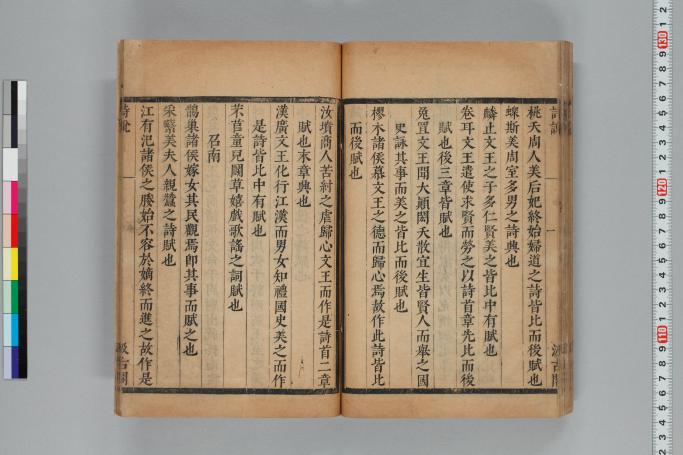 桃夭周人美后妃終始婦道之詩皆比而後賦也
螽斯美周室多男之詩興也
麟止文王之子多仁賢美之皆比中有賦也
卷耳文王遣使求賢而勞之以詩首章先比而後
賦也後三章皆賦也
兔罝文王聞大顛閎夭散宜生皆賢人而舉之國
史詠其事而美之皆比而後賦也
樛木諸侯慕文王之德而歸心焉故作此詩皆比
而後賦也
汝墳商人苦紂之虐歸心文王而作是詩首二章
賦也末章興也
漢廣文王化行江漢而男女知禮國史美之而作
是詩皆比中有賦也
芣苢童兒鬬草嬉戲歌謠之詞賦也
召南
鵲巢諸侯嫁女其民觀焉即其事而賦之也
采蘩美夫人親蠶之詩賦也
江有汜諸侯之媵始不容於嫡終而進之故作是
詩說
一
汲古閣